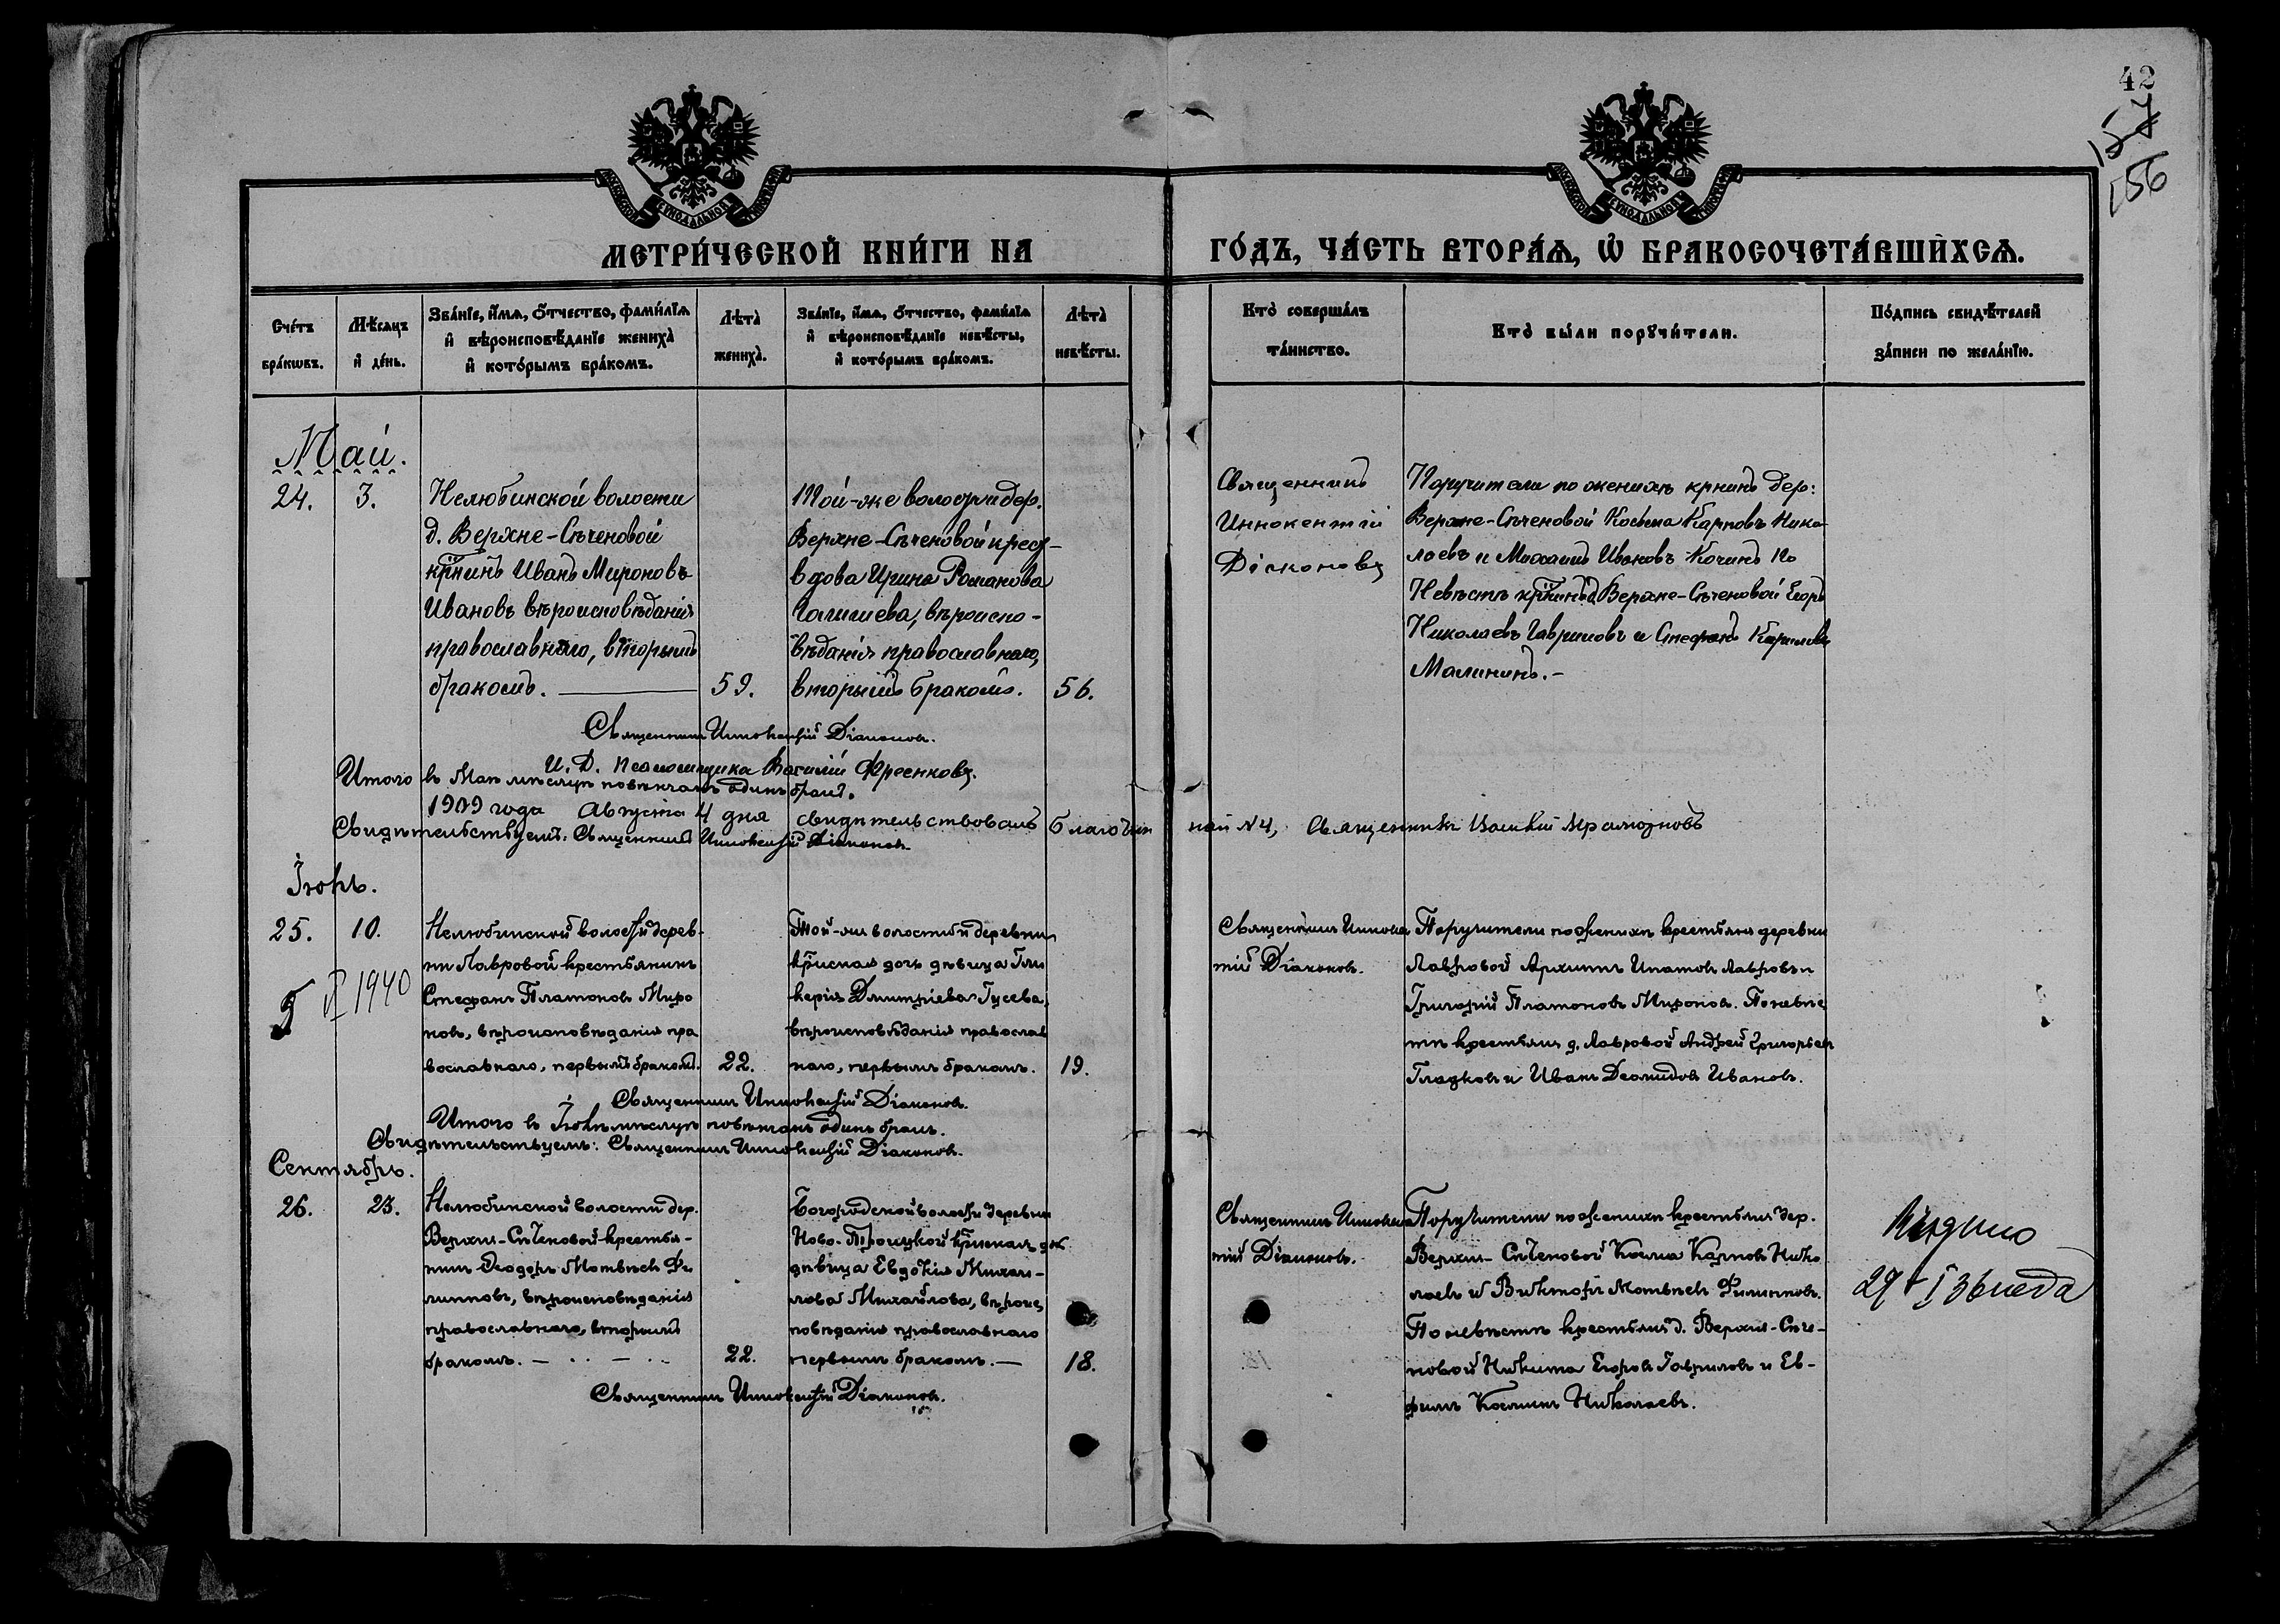 42
157
156
МЕТРИ́ЧЕСКОЙ КНИ́ГИ НА
ГО́ДЪ, ЧА́СТЬ ВТОРА́Ѧ, Ѽ БРАКОСОЧЕТА́ВШИХСѦ.
Сче́тъ
бра́кѡвъ.
Мѣсѧцъ
и де́нь.
Зва́нїе, и́мѧ, ѻ́тчество, фами́лїѧ
и вѣроисповѣданїе жениха̀
и кото́рымъ бра́комъ.
Лѣта̀
жениха̀.
Зва́нїе, и́мѧ, ѻ́тчество, фами́лїѧ
и вѣроисповѣданїе невѣсты,
и кото́рымъ бра́комъ.
Лѣта̀
невѣсты.
Кто̀ соверша́лъ
та́инство.
Кто̀ бы́ли порꙋчи́тели.
По́дпись свидѣтелей
за́писи по жела́нїю.
Май.
24.
3.
Нелюбинской волости
д. Верхне-Сѣченовой
крнинъ Иванъ Мироновъ
Ивановъ вѣроисповѣданія
православнаго, вторымъ
бракомъ.
59.
Той-же волости дер.
Верхне-Сѣченовой крест-
вдова Ирина Романова
вѣроиспо-
вѣданія православнаго,
вторымъ бракомъ.
56.
Священникъ
Иннокентій
Діаконовъ
Поручители по женихѣ крнинъ дер:
Верхне-Сѣченовой Косьма Карповъ Нико-
лаевъ и Михаилъ Ивановъ Кочинъ По
Невѣстѣ крнинъ д. Верхне-Сѣченовой Егоръ
Николаевъ Гавриловъ и Стефанъ Кириловъ
Малининъ.-
Священникъ Иннокентій Діаконовъ.
И. Д. псаломщика Василій Фреенковъ.
Итого въ Маѣ мѣсяцѣ повѣнчанъ одинъ бракъ.
1909 года Августа 4 дня свидѣтельствовалъ Благочин
ный № 4, Священникъ
Свидѣтельствуемъ: Священникъ Иннокентій Діаконовъ
Іюнь.
25.
10.
Нелюбинской волости дерев-
ни Лавровой крестьянинъ
Стефанъ Платоновъ Миро
новъ, вѣроисповѣданія пра
вославнаго, первымъ бракомъ.
22.
Той-же волости и деревни
крнская дочь дѣвица Гли
керія Дмитріева Гусева,
вѣроисповѣданія православ
наго, первымъ бракомъ.
19.
VI 1940
Священникъ Иннокен
тій Діаконовъ.
Поручители по женихѣ крестьяне деревни
Лавровой Архипъ Ипатовъ Лавровъ и
Григорій Платоновъ Мироновъ. По невѣс
тѣ крестьяне д. Лавровой Андрей Григорьевъ
Гладковъ и Иванъ Деомидовъ Ивановъ.
Священникъ Иннокентій Діаконовъ.
Итого въ Іюнѣ мѣсяцѣ повѣнчанъ одинъ бракъ.
Свидѣтельствуемъ: Священникъ Иннокентій Діаконовъ.
Сентябрь.
26.
23.
Нелюбинской волости дер.
Верхне-Сѣченовой крестья-
нинъ Феодоръ Матвѣевъ Фи
липповъ, вѣроисповѣданія
православнаго, вторымъ
бракомъ.
22.
Богородской волости деревни
Ново-Троицкой крнская доч
дѣвица Евдокія Михаи-
лова Михайлова, вѣроис
повѣданія православнаго
первымъ бракомъ.
18.
Священникъ Иннокен
тій Діаконовъ.
Поручители по женихѣ крестьяне дер.
Верхне-Сѣченовой Косма Карповъ Нико
лаевъ и Викторъ Матвѣевъ Филипповъ.
По невѣстѣ крестьяне д. Верхне-Сѣче-
новой Никита Егоровъ Гавриловъ и Ев-
фимъ Косминъ Николаевъ.
Видано
29 I 36 года
Священникъ Иннокентій Діаконовъ.